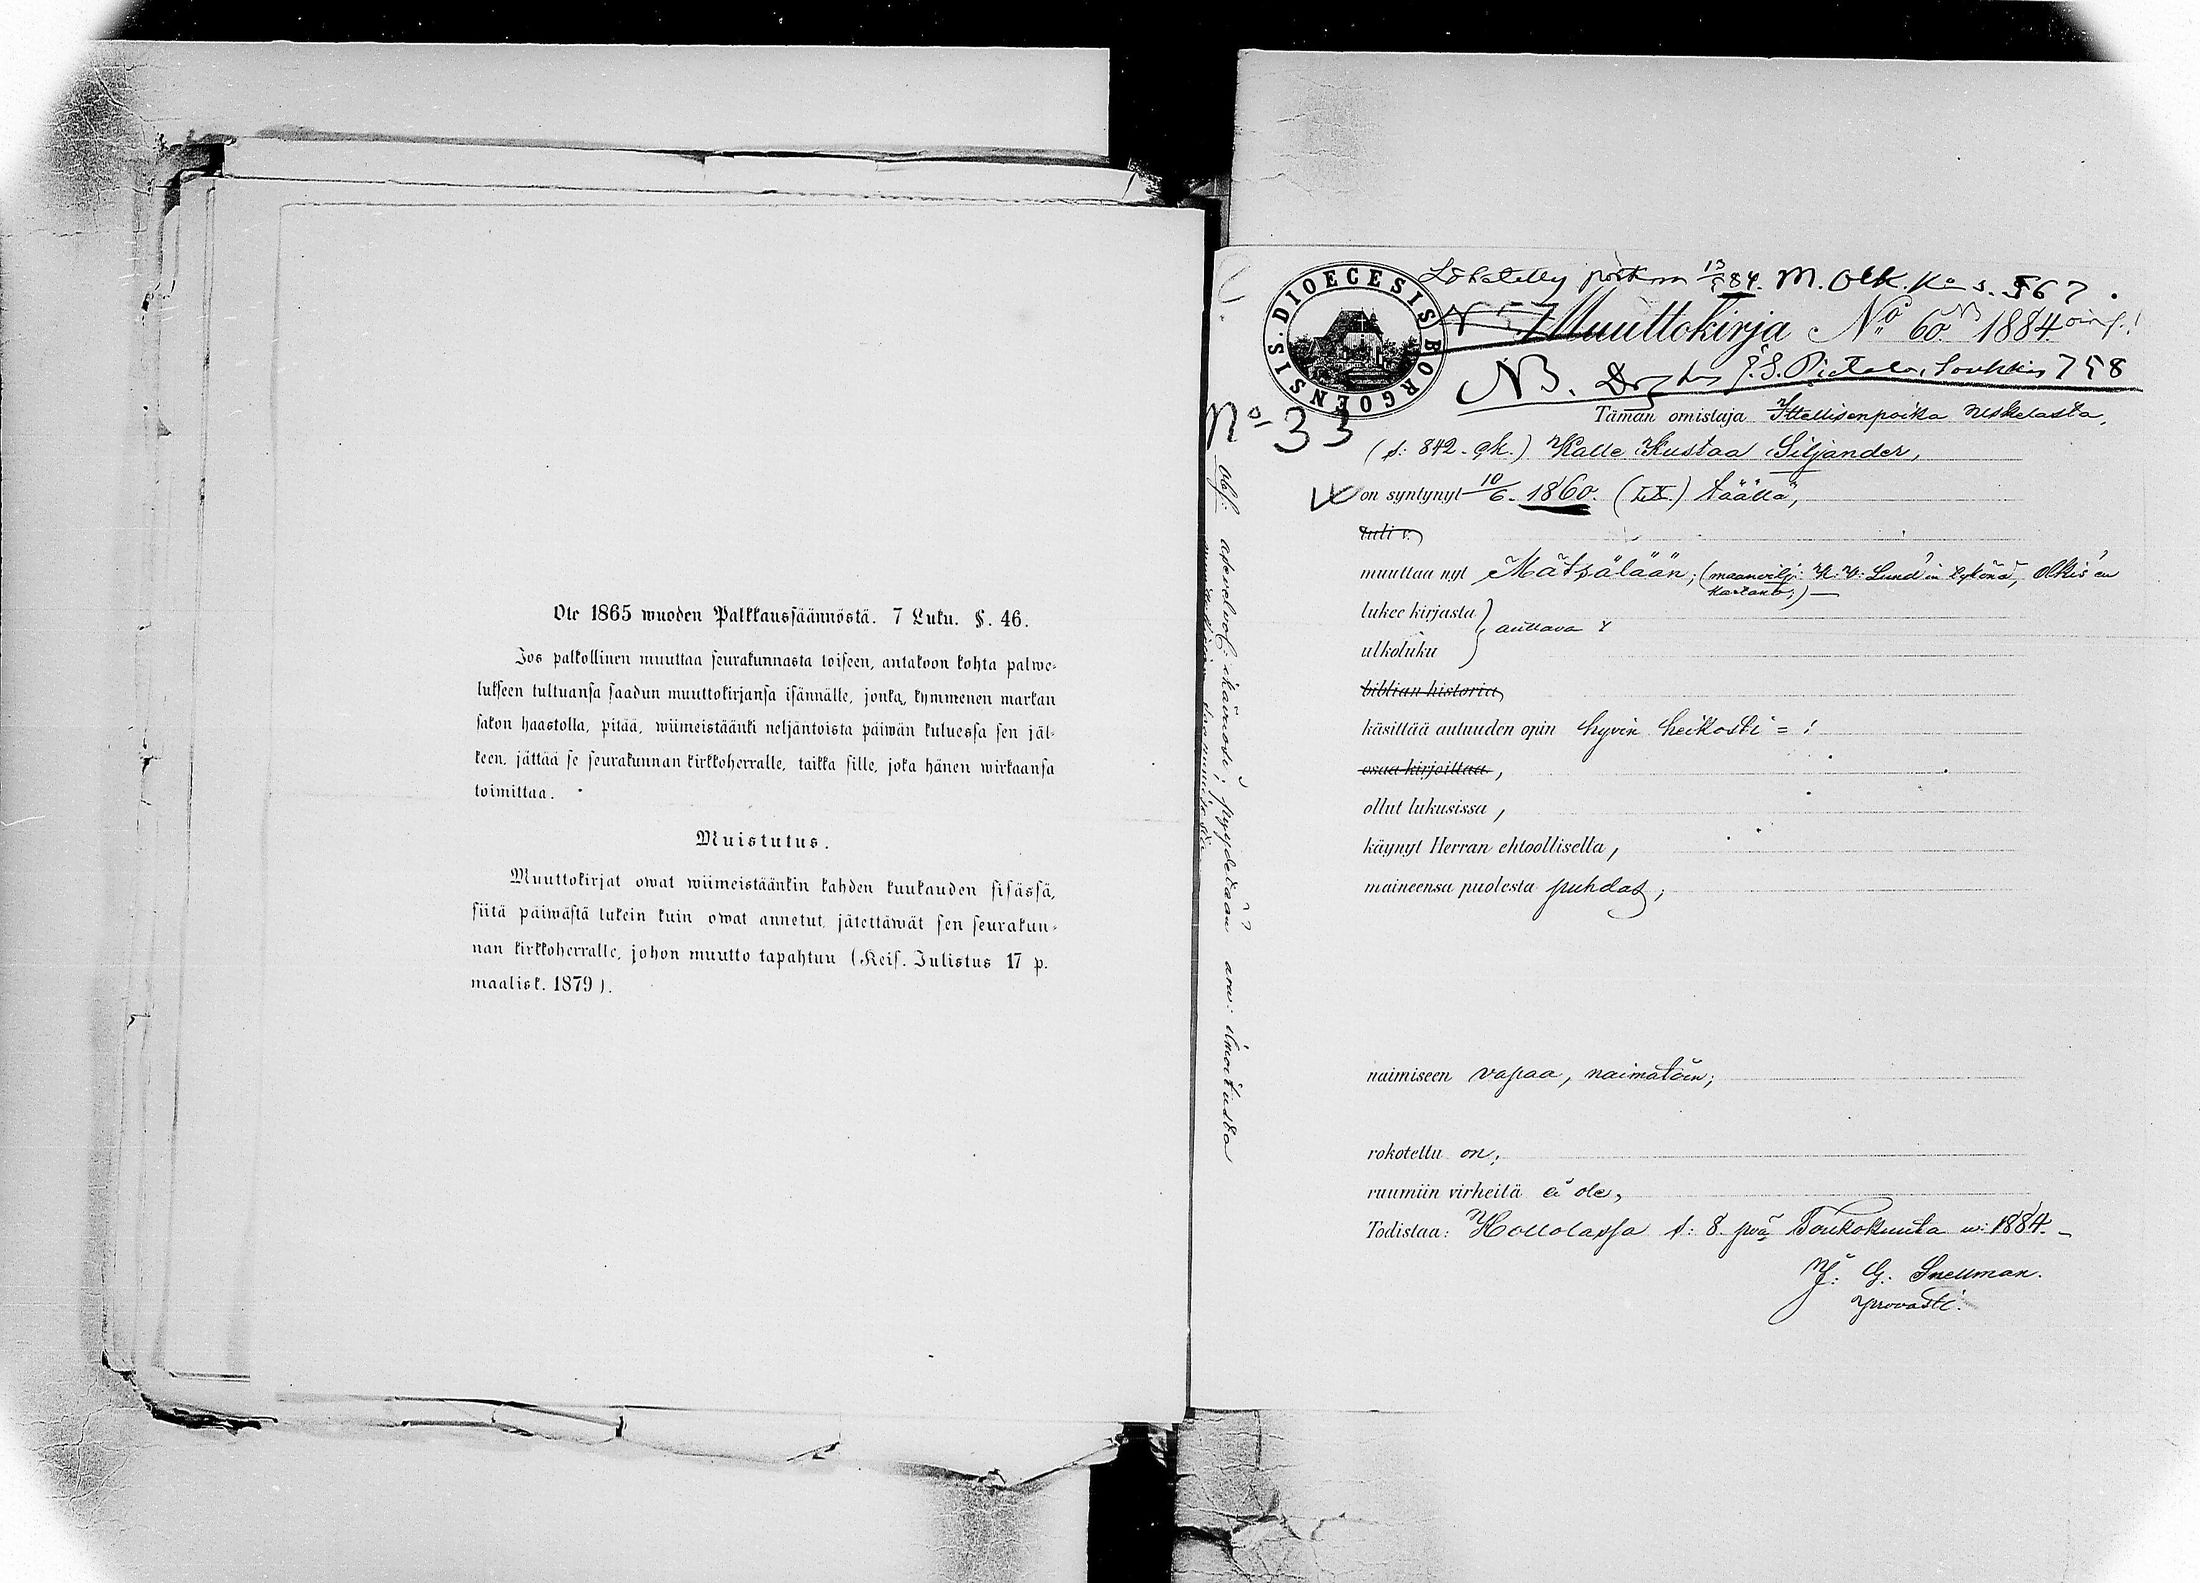 Ote 1865 wuoden Palkkaussäännöstä. 7 Luku. §. 46.
Jos palkollinen muuttaa seurakunnasta toiseen, antakoon kohta palwe-
lukseen tultuansa saadun muuttokirjansa isännälle, jonka, kymmenen markan
sakon haastolla, pitää, wiimeistäänki neljäntoista päiwän kuluessa sen jäl-
keen, jättää se seurakunnan kirkkoherralle, taikka sille, joka hänen wirkaansa
toimittaa.
Muistutus.
Muuttokirjat owat wiimeistäänkin kahden kuukauden sisässä,
siitä päiwästä lukein kuin owat annetut, jätettäwät sen seurakun-
nan kirkkoherralle, johon muutto tapahtuu (Keis. Julistus 17 p.
maalisk. 1879).
DIOECESIS BORGOENSIS.
13/5 84. M. Olk. K:a s. 567.
Muuttokirja No 60. 1884.
NB. J. S. Pietola, 758
No 33
Tämän omistaja Ittellisenpoika Uskelasta,
(s: 842. gk.) Kalle Kustaa Siljander,
on syntynyt 10/6. 1860. (LX.) täällä,
tuli v.
muuttaa nyt Mätsälään; (maanvilj: K: V: Lund'in tykönä, Olkis'en
kartano;)
lukee kirjasta
ulkoluku
auttava
biblian historia
käsittää autuuden opin hyvin heikosti = !
osaa kirjoittaa,
ollut lukusissa,
käynyt Herran ehtoollisella,
maineensa puolesta puhdas;
naimiseen vapaa, naimatoin;
rokotettu on;
ruumiin virheitä ei ole,
Todistaa: Hollolassa s: 8. pvä Toukokuuta w: 1884.
J: G. Snellman.
provasti.
Obs: asevelvol: ikäinnosti; pyydetään arv: ilmoitusta